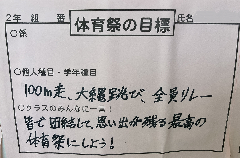 2年 組 番 体育祭の目標 氏名
○係
○個人種目・学年種目
100m走、大縄跳び、全員リレー
○クラスのみんなに一言!
皆で団結して、思い出が残る最高の
体育祭にしよう!